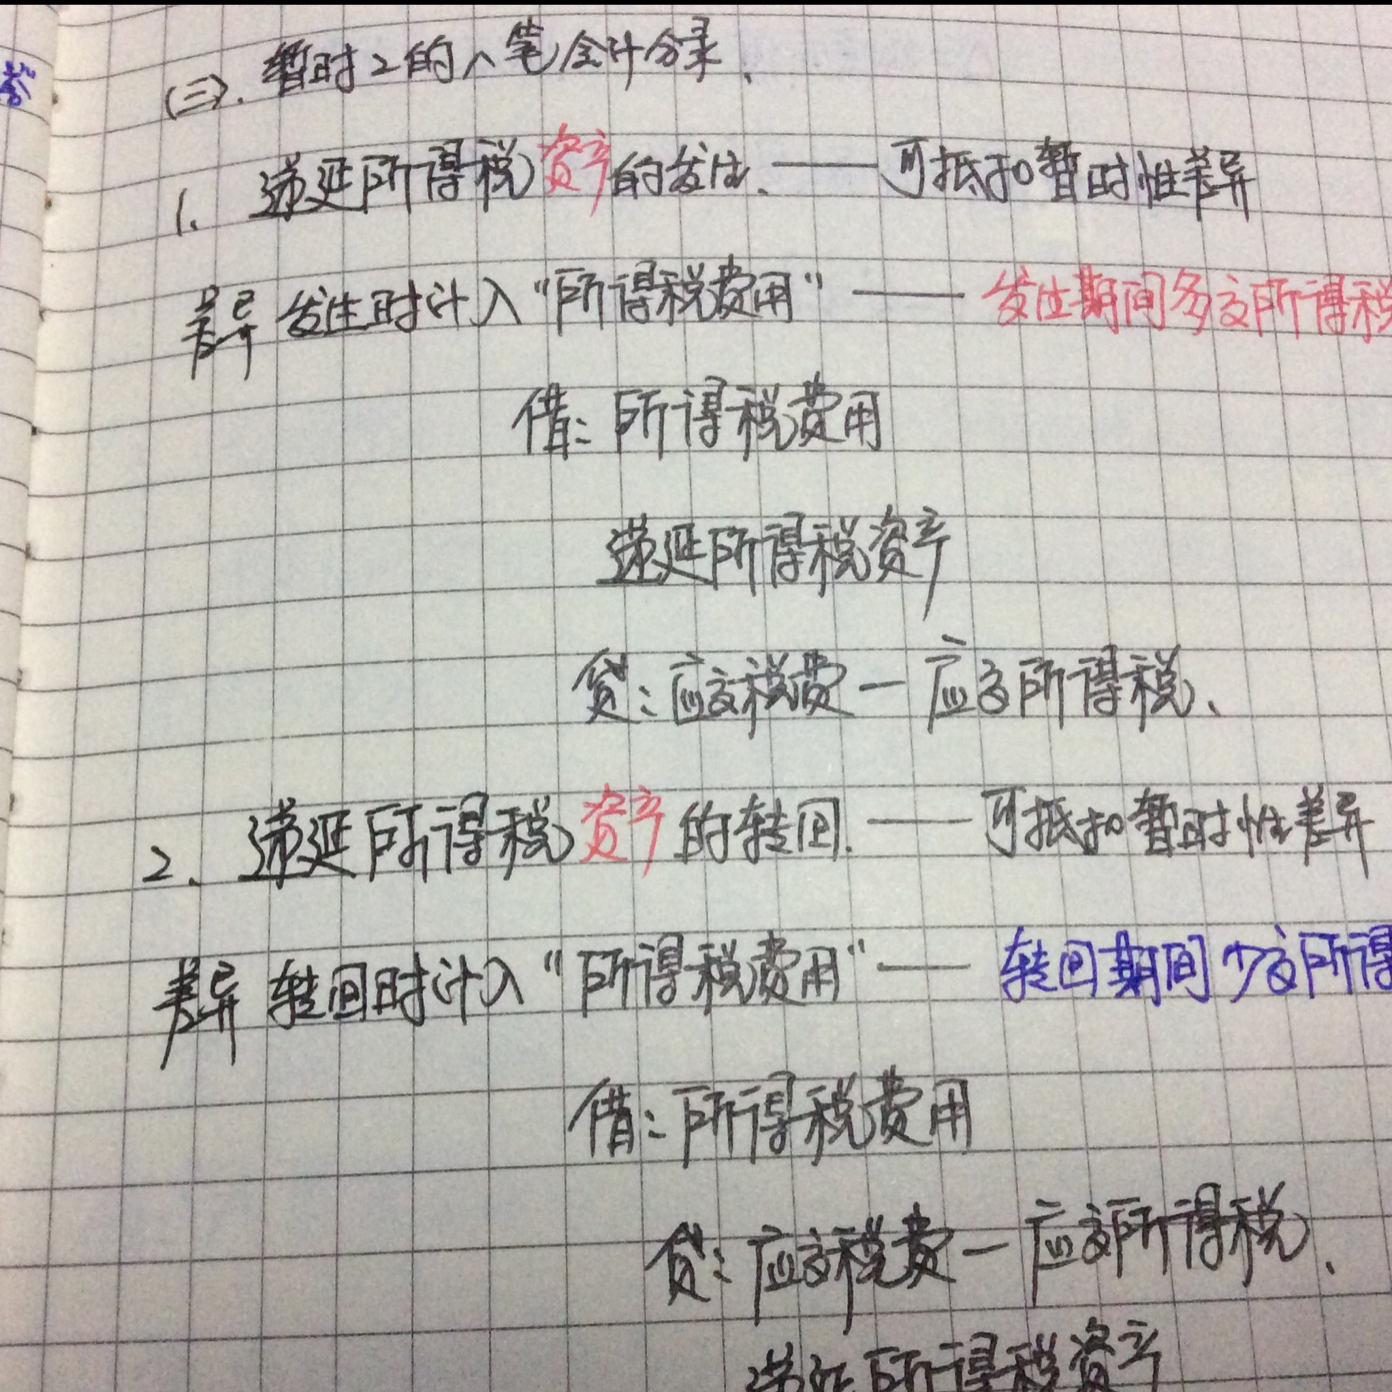 (三). 暂时2的八笔会计分录、
1. 递延所得税资产的发生. —— 可抵扣暂时性差异
差异发生时计入“所得税费用” —— 发生期间多交所得税
借: 所得税费用
递延所得税资产
贷: 应交税费 — 应交所得税、
2、递延所得税资产的转回. —— 可抵扣暂时性差异
差异转回时计入“所得税费用” —— 转回期间少交所得
借: 所得税费用
贷: 应交税费 — 应交所得税、
递延所得税资产